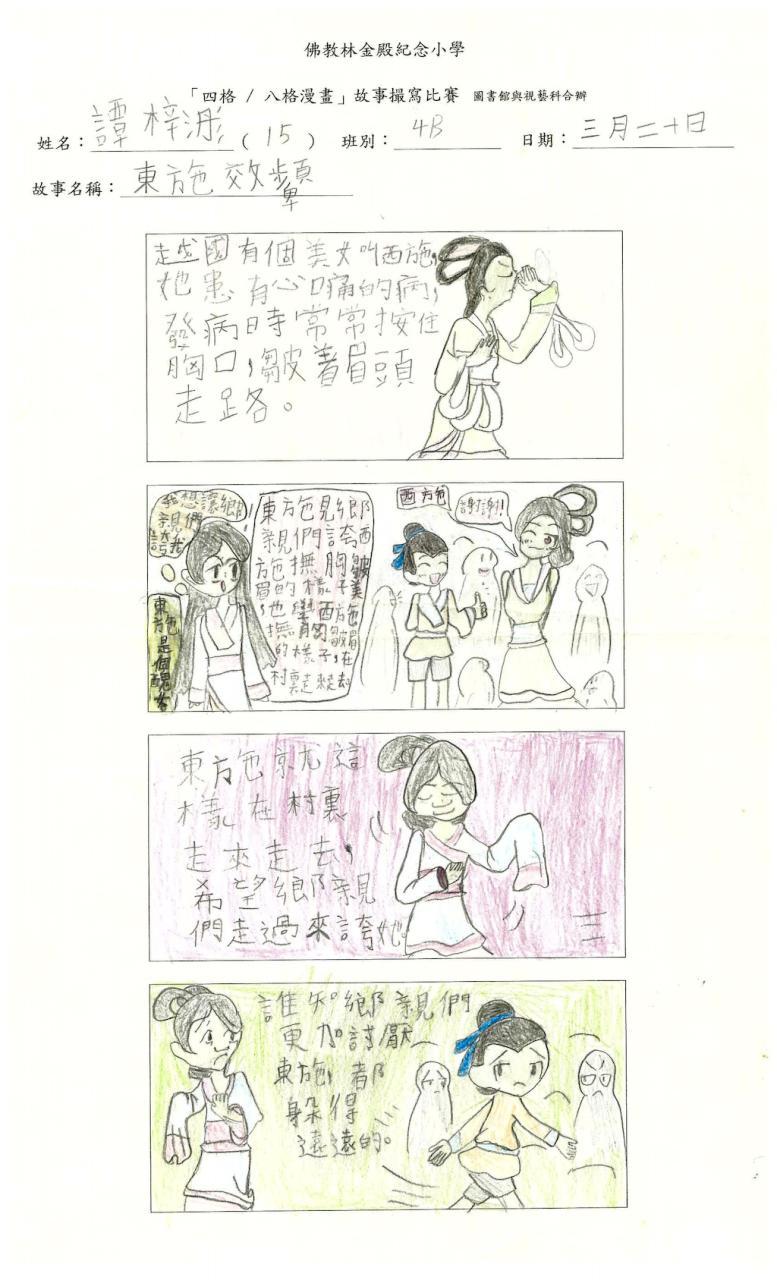 佛教林金殿紀念小學
「四格 / 八格漫畫」故事撮寫比賽 圖書館與視藝科合辦
姓名：譚梓浵 ( 15 ) 班別：4B 日期：三月二十日
故事名稱：東施效顰
越國有個美女叫西施，
她患有心口痛的病，
發病時常常按住
胸口，皺着眉頭
走路。
我想讓鄉
親們
誇我
東施是個醜女
東施見鄉
親們誇西
施撫胸皺
眉的樣子美
，也學西施
撫胸皺眉
的樣子，在
村裏走來走去
西施
謝謝!!
東施就這
樣在村裏
走來走去，
希望鄉親
們走過來誇她。
誰知鄉親們
更加討厭
東施，都
躲得
遠遠的。